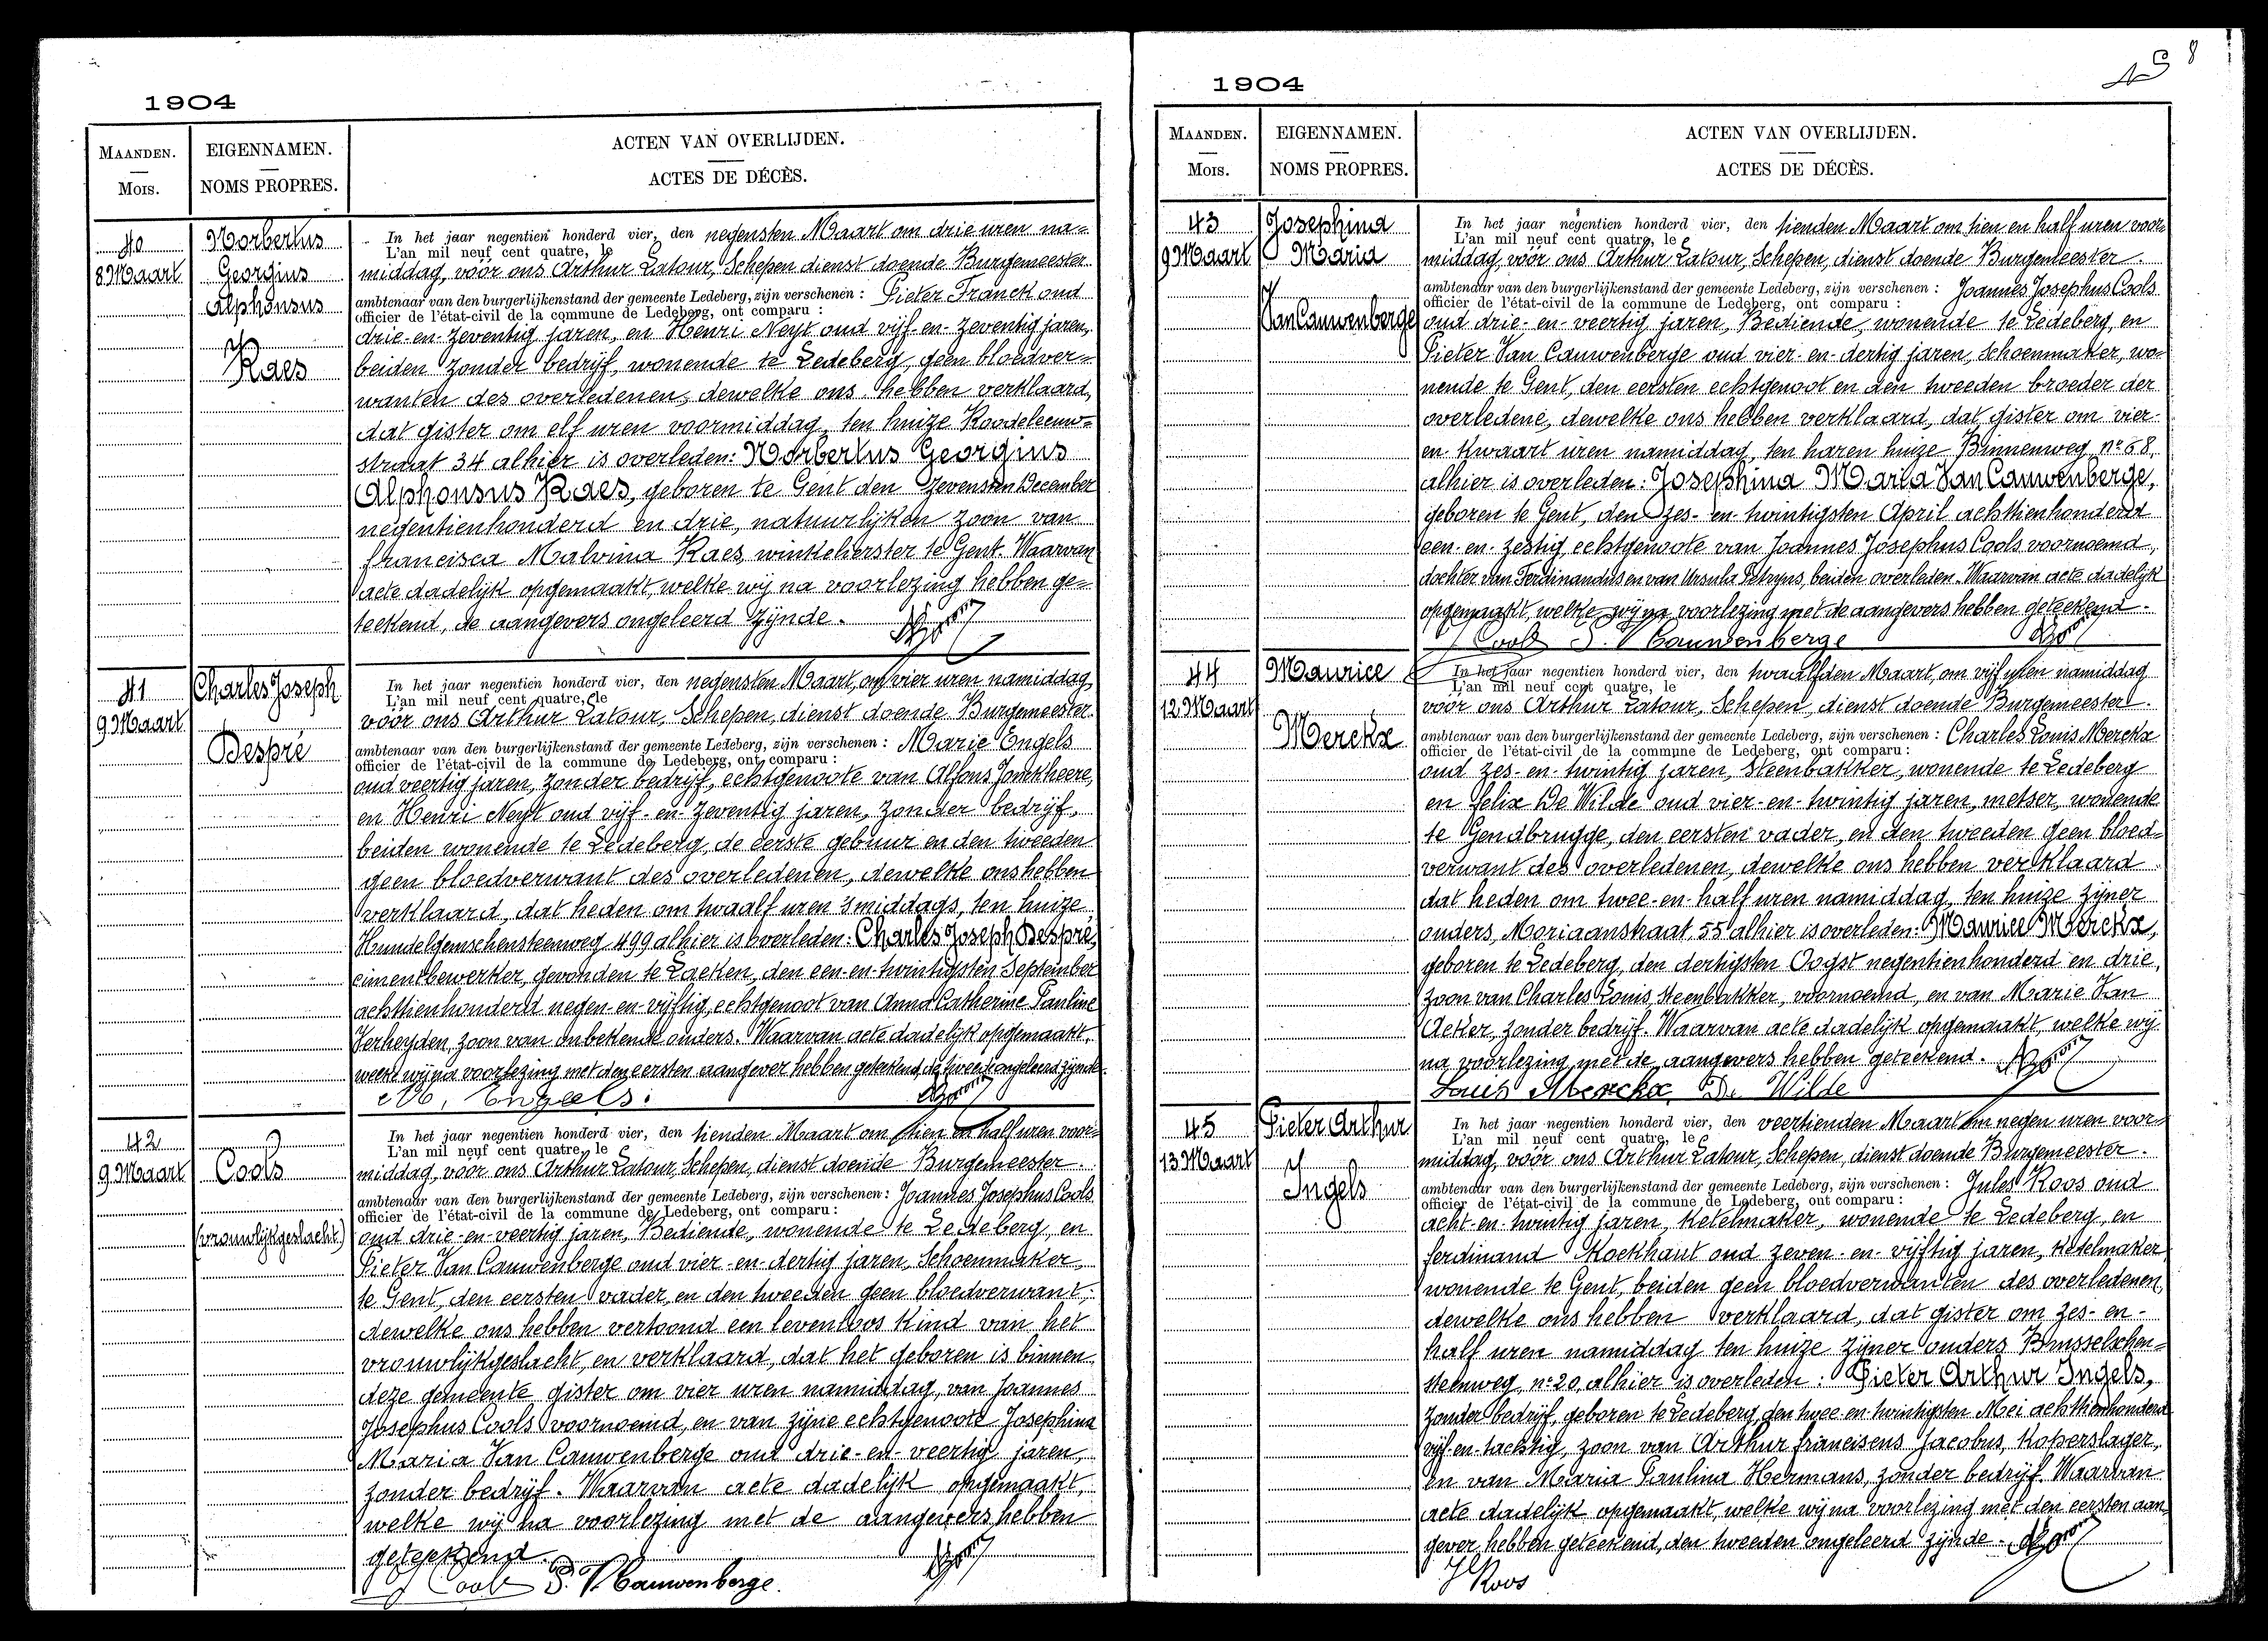 1904
MAANDEN.
Mois.
EIGENNAMEN.
NOMS PROPRES.
ACTEN VAN OVERLIJDEN.
ACTES DE DÉCÈS.
40
8 Maart
Norbertus
Georgius
Alphonsus
Raes
In het jaar negentien honderd vier, den negensten Maart om drie uren na=
L'an mil neuf cent quatre, le
middag, vóór ons Arthur Latour, Schepen dienst doende Burgemeester
ambtenaar van den burgerlijkenstand der gemeente Ledeberg, zijn verschenen : Pieter Franck oud
officier de l'état-civil de la commune de Ledeberg, ont comparu :
drie-en-zeventig jaren, en Henri Neyt oud vijf-en-zeventig jaren,
beiden zonder bedrijf, wonende te Ledeberg, geen bloedver=
wanten des overledenen, dewelke ons hebben verklaard,
dat gister om elf uren voormiddag, ten huize Roodeleeuw=
straat 34 alhier is overleden: Norbertus Georgius
Alphonsus Raes, geboren te Gent den zevensten December
negentienhonderd en drie, natuurlijken zoon van
Francisca Malvina Raes, winkelierster te Gent. Waarvan
acte dadelijk opgemaakt, welke wij na voorlezing hebben ge=
teekend, de aangevers ongeleerd zijnde.
41
9 Maart
Charles Joseph
Despré
In het jaar negentien honderd vier, den negensten Maart, om vier uren namiddag
L'an mil neuf cent quatre, le
vóór ons Arthur Latour, Schepen, dienst doende Burgemeester
ambtenaar van den burgerlijkenstand der gemeente Ledeberg, zijn verschenen : Marie Engels
officier de l'état-civil de la commune de Ledeberg, ont comparu :
oud veertig jaren, zonder bedrijf, echtgenoote van Alfons Jonckheere,
en Henri Neyt oud vijf-en-zeventig jaren, zonder bedrijf,
beiden wonende te Ledeberg, de eerste gebuur en den tweeden
geen bloedverwant des overledenen, dewelke ons hebben
verklaard, dat heden om twaalf uren 's middags, ten huize
Hundelgemschensteenweg 499 alhier is overleden: Charles Joseph Despré,
cimentbewerker, gevonden te Laeken, den een-en-twintigsten September
achttienhonderd negen-en-vijftig, echtgenoot van Anna Catherine Pauline
Verheyden, zoon van onbekende ouders. Waarvan acte dadelijk opgemaakt,
welke wij na voorlezing met den eersten aangever hebben geteekend, de tweede ongeleerd zijnde.
M. Engels.
42
9 Maart
Cools
(vrouwlijkgeslacht)
In het jaar negentien honderd vier, den tienden Maart om tien en half uren voor=
L'an mil neuf cent quatre, le
middag, voor ons Arthur Latour, Schepen, dienst doende Burgemeester.
ambtenaar van den burgerlijkenstand der gemeente Ledeberg, zijn verschenen : Joannes Josephus Cools
officier de l'état-civil de la commune de Ledeberg, ont comparu :
oud drie-en-veertig jaren, Bediende, wonende te Ledeberg, en
Pieter Van Cauwenberge oud vier-en-dertig jaren, Schoenmaker,
te Gent, den eersten vader, en den tweeden geen bloedverwant,
dewelke ons hebben vertoond een levenloos kind van het
vrouwlijkgeslacht, en verklaard, dat het geboren is binnen
deze gemeente gister om vier uren namiddag, van Joannes
Josephus Cools voornoemd, en van zijne echtgenoote Josephina
Maria Van Cauwenberge oud drie-en-veertig jaren,
zonder bedrijf. Waarvan acte dadelijk opgemaakt,
welke wij na voorlezing met de aangevers hebben
geteekend.
J Cools P. V. Cauwenberge.
8
1904
MAANDEN.
Mois.
EIGENNAMEN.
NOMS PROPRES.
ACTEN VAN OVERLIJDEN.
ACTES DE DÉCÈS.
43
9 Maart
Josephina
Maria
Van Cauwenberge
In het jaar negentien honderd vier, den tienden Maart om tien en half uren voor=
L'an mil neuf cent quatre, le
middag, vóór ons Arthur Latour, Schepen, dienst doende Burgemeester.
ambtenaar van den burgerlijkenstand der gemeente Ledeberg, zijn verschenen : Joannes Josephus Cools
officier de l'état-civil de la commune de Ledeberg, ont comparu :
oud drie-en-veertig jaren, Bediende, wonende te Ledeberg, en
Pieter Van Cauwenberge oud vier-en-dertig jaren, schoenmaker, wo=
nende te Gent, den eersten echtgenoot en den tweeden broeder der
overledene, dewelke ons hebben verklaard, dat gister om vier-
en kwaart uren namiddag, ten haren huize Binnenweg, nº 68,
alhier is overleden: Josephina Maria Van Cauwenberge,
geboren te Gent, den zes-en-twintigsten April achttienhonderd
een-en-zestig, echtgenoote van Joannes Josephus Cools voornoemd,
dochter van Ferdinandus en van Ursula Petryns, beiden overleden. Waarvan acte dadelijk
opgemaakt, welke wij na voorlezing met de aangevers hebben geteekend.
J Cools P. V Cauwenberge
44
12 Maart
Maurice
Merckx
In het jaar negentien honderd vier, den twaalfden Maart, om vijf uren namiddag
L'an mil neuf cent quatre, le
vóór ons Arthur Latour, Schepen, dienst doende Burgemeester.
ambtenaar van den burgerlijkenstand der gemeente Ledeberg, zijn verschenen : Charles Louis Merckx
officier de l'état-civil de la commune de Ledeberg, ont comparu :
oud zes-en-twintig jaren, Steenbakker, wonende te Ledeberg
en Felix De Wilde oud vier-en-twintig jaren, metser, wonende
te Gendbrugge, den eersten vader, en den tweeden geen bloed=
verwant des overledenen, dewelke ons hebben verklaard
dat heden om twee-en-half uren namiddag, ten huize zijner
ouders, Moriaanstraat, 55 alhier is overleden: Maurice Merckx,
geboren te Ledeberg, den dertigsten Oogst negentienhonderd en drie,
zoon van Charles Louis, steenbakker, voornoemd, en van Marie Van
Acker, zonder bedrijf. Waarvan acte dadelijk opgemaakt, welke wij
na voorlezing met de aangevers hebben geteekend.
Louis Merckx De Wilde
45
13 Maart
Pieter Arthur
Ingels
In het jaar negentien honderd vier, den veertienden Maart om negen uren voor=
L'an mil neuf cent quatre, le
middag, vóór ons Arthur Latour, Schepen, dienst doende Burgemeester.
ambtenaar van den burgerlijkenstand der gemeente Ledeberg, zijn verschenen : Jules Roos oud
officier de l'état-civil de la commune de Ledeberg, ont comparu :
acht-en-twintig jaren, ketelmaker, wonende te Ledeberg, en
Ferdinand Kockhaut oud zeven-en-vijftig jaren, ketelmaker
wonende te Gent, beiden geen bloedverwanten des overledenen,
dewelke ons hebben verklaard, dat gister om zes-en-
half uren namiddag ten huize zijner ouders Brusselschen=
steenweg, nº 20, alhier is overleden : Pieter Arthur Ingels,
zonder bedrijf, geboren te Ledeberg den twee-en-twintigsten Mei achttienhonderd
vijf-en-tachtig, zoon van Arthur Franciscus Jacobus, Koperslager,
en van Maria Paulina Hermans, zonder bedrijf. Waarvan
acte dadelijk opgemaakt, welke wij na voorlezing met den eersten aan=
gever hebben geteekend, den tweeden ongeleerd zijnde.
J Roos